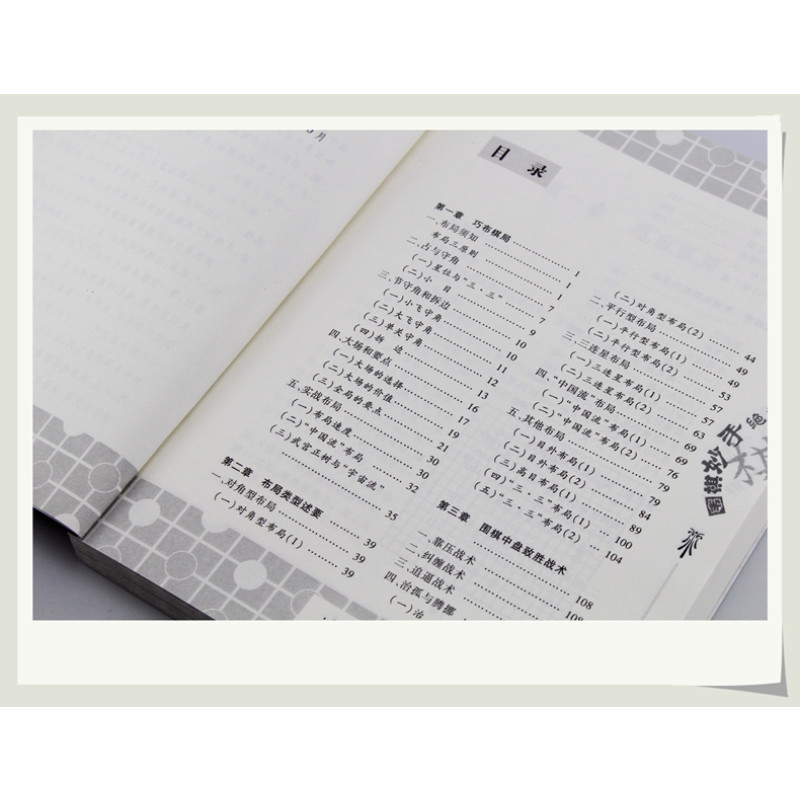 月
目 录
第一章 巧布棋局
一、布局须知 …… 1
布局三原则 …… 1
二、占与守角 …… 7
(一)星位与“三·三” …… 7
(二)小 目 …… 9
三、节守角和拆边 …… 10
(一)小飞守角 …… 10
(二)大飞守角 …… 11
(三)单关守角 …… 12
(四)拆 边 …… 13
四、大场和要点 …… 16
(一)大场的选择 …… 17
(二)大场的价值 …… 19
(三)全局的要点 …… 21
五、实战布局 …… 30
(一)布局速度 …… 30
(二)“中国流”布局 …… 32
(三)武宫正树与“宇宙流” …… 35
第二章 布局类型述要
一、对角型布局 …… 39
(一)对角型布局(1) …… 39
(二)对角型布局(2) …… 44
二、平行型布局 …… 49
(一)平行型布局(1) …… 49
(二)平行型布局(2) …… 53
三、三连星布局 …… 57
(一)三连星布局(1) …… 57
(二)三连星布局(2) …… 63
四、“中国流”布局 …… 69
(一)“中国流”布局(1) …… 69
(二)“中国流”布局(2) …… 76
五、其他布局 …… 79
(一)目外布局(1) …… 79
(二)目外布局(2) …… 84
(三)高目布局(1) …… 89
(四)“三·三”布局(1) …… 100
(五)“三·三”布局(2) …… 104
第三章 围棋中盘致胜战术
一、靠压战术 …… 108
二、纠缠战术 …… 108
三、追逼战术
四、治孤与腾挪
(一)治
围棋妙手